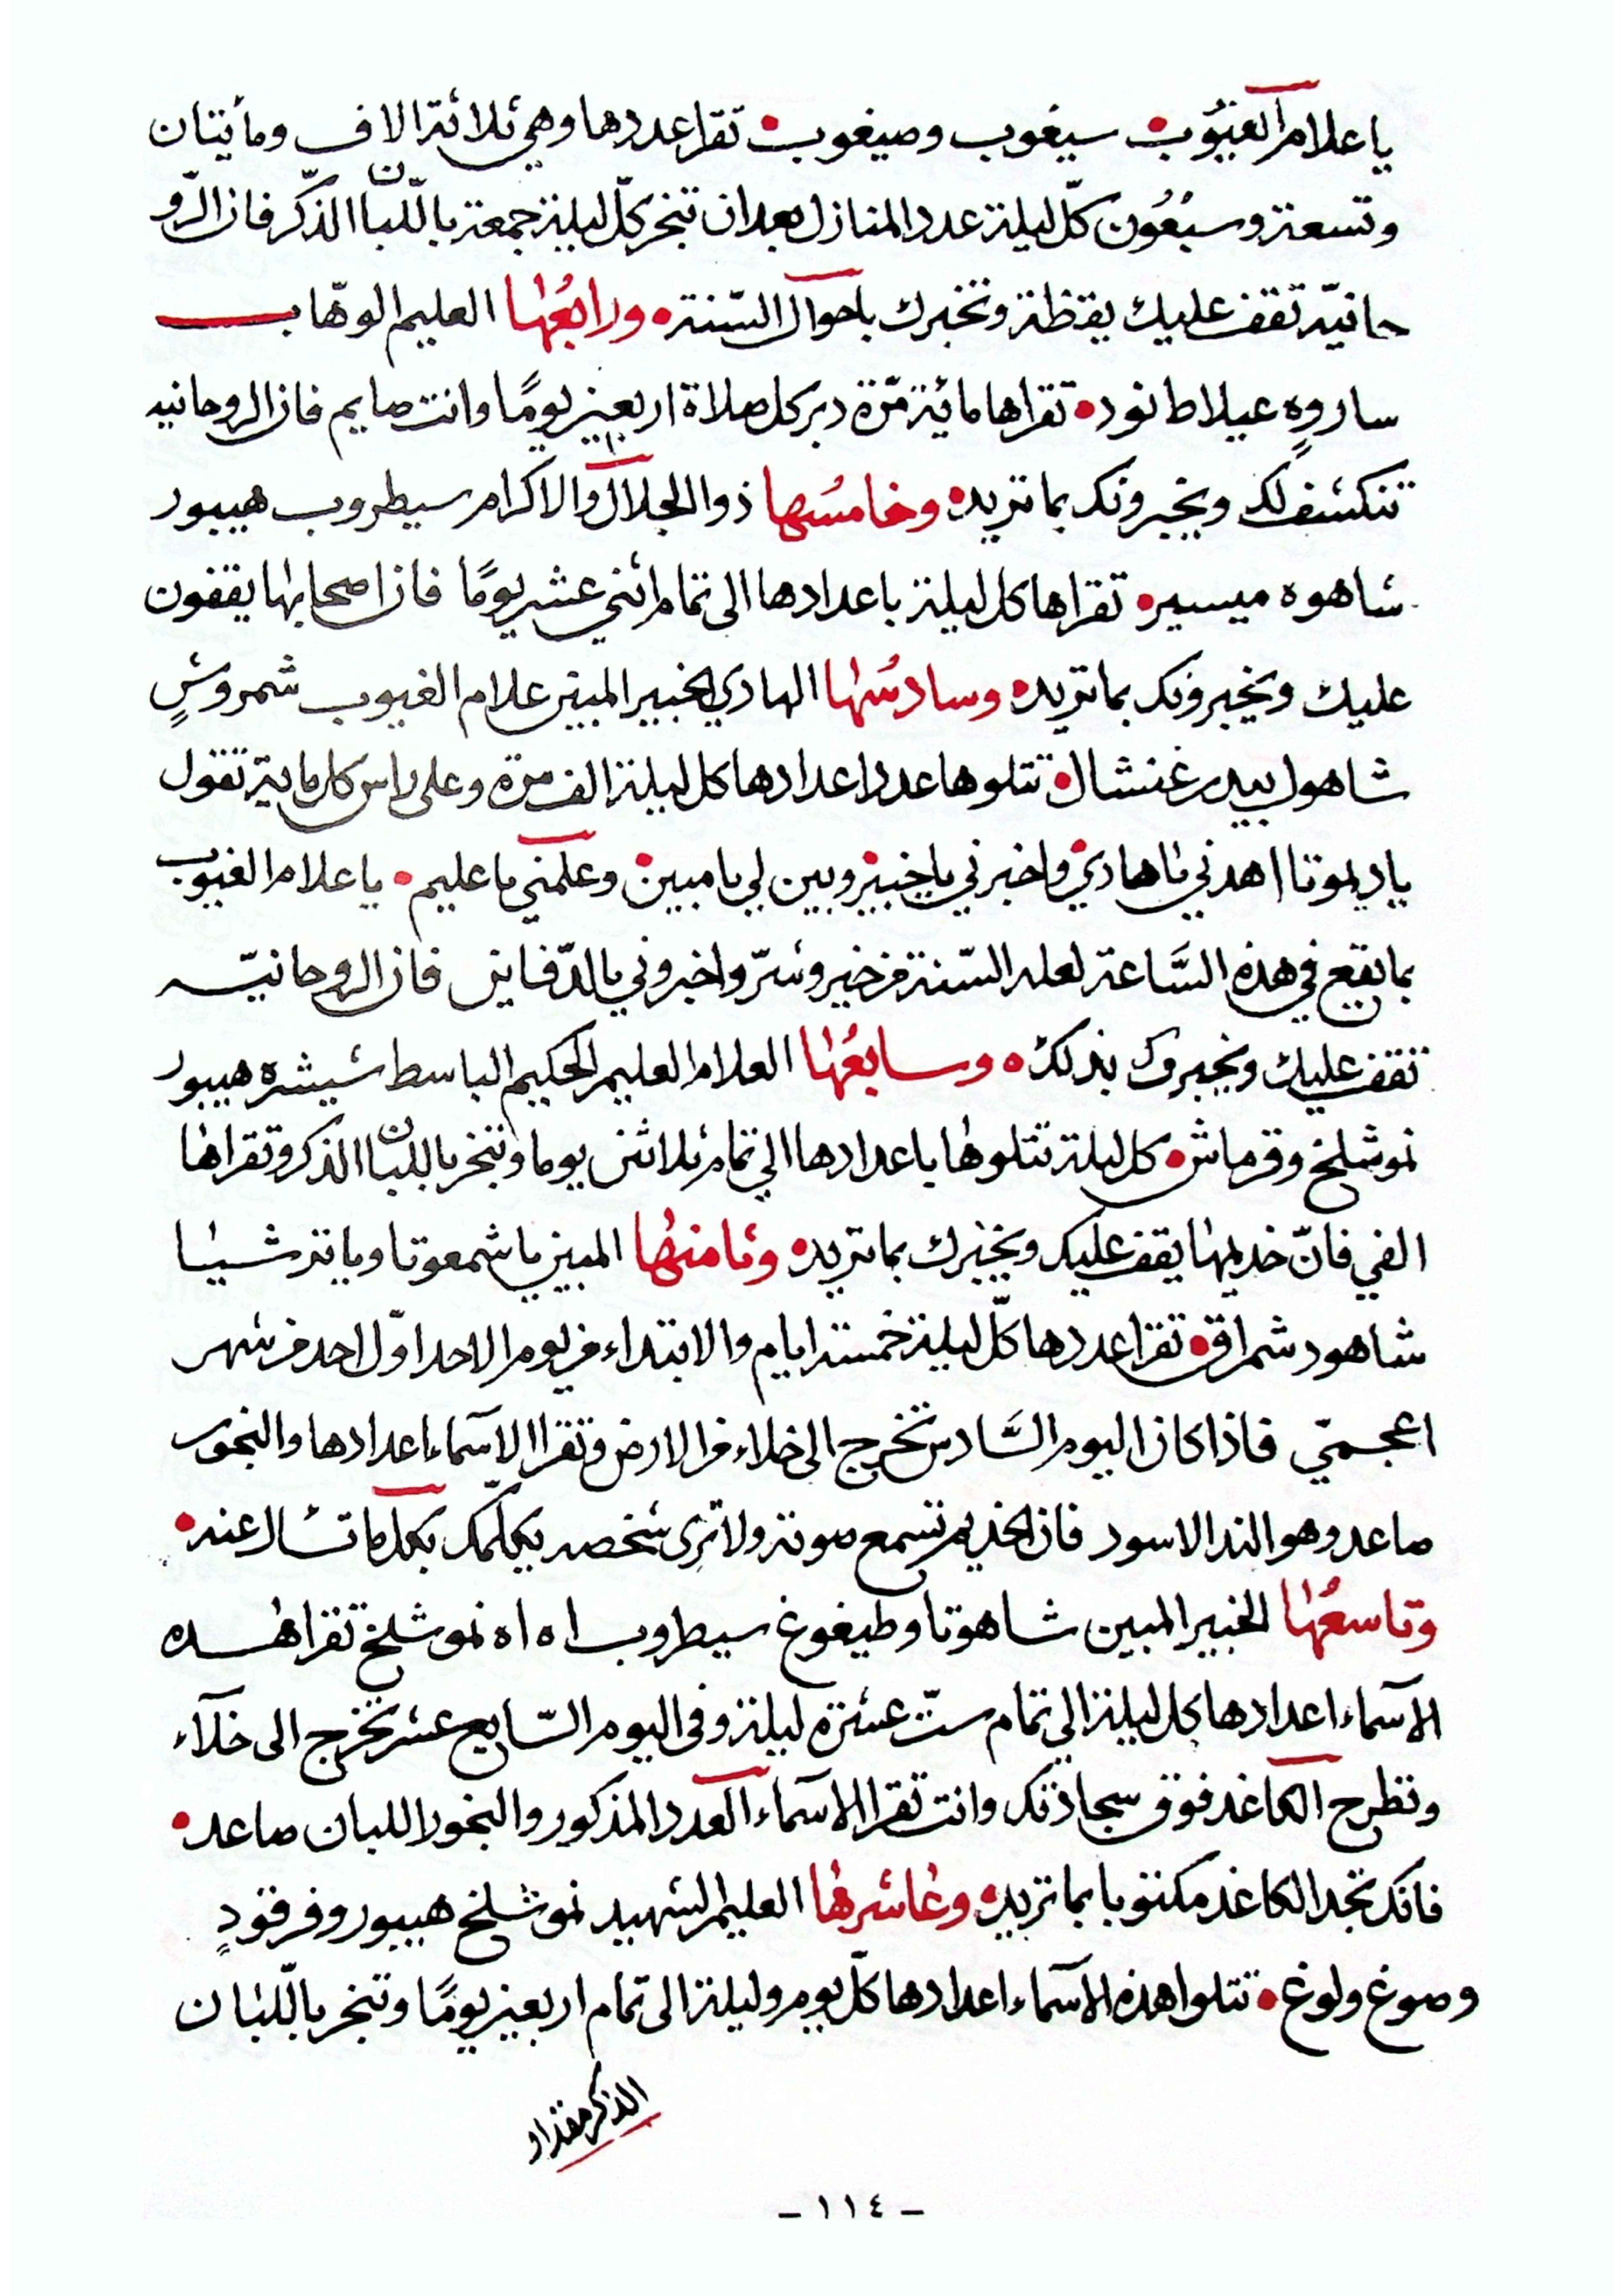 يا علام الغيوب سيغوب وصيغوب تقرا عددها وهي ثلاثة الاف ومأيتان
وتسعة وسبعُون كلّ ليلة عدد المنازل بعد ان تبخر كلّ ليلة جمعة باللّبان الذّكر فان الرّو
حانيّه تقف عليك يقظة وتخبرك باحوال السّنة ورابعُها العليم الوهّاب
ساروهٍ عيلاط نود تقراها مائية مّرة دبر كل صلاة اربعين يومًا وانت صايم فان الروحانيه
تنكشف لك ويخبرونك بما تريد وخامسُها ذو الجلال والاكرام سيطروب هيبور
شاهوه ميسير تقراها كل ليلة باعدادها الى تمام اثني عشر يومًا فان اصحابها يقفون
عليك ويخبرونك بما تريد وسادسُها الهادي الخبير المبين علام الغيوب شمروشٍ
شاهول بيدرغنشال تتلوها عدد اعدادها كل ليلة الف مرة وعلى راس كل ماية تقول
يا ديموتا اهدني يا هادي واخبرني يا خبير وبين لي يا مبين وعلمني يا عليم يا علام الغيوب
بما يقع في هذه السَّاعة لعله السّنة من خير وشرّ واخبروني بالدّفاين فان الروحانيّه
تقف عليك ويخبروك بذلك وسابعُها العلام العليم الحكيم الباسط شيشره هيبور
نموشلخ وقرماش كل ليلة تتلوها باعدادها الي تمام ثلاثين يوما وتبخر باللبان الذكر وتقراها
الفي فانّ خديمها يقف عليك ويخبرك بما تريد وثامنها المبين يا شمعوتا ويا تر شيئا
شاهود شمراق تقرا عددها كلّ ليلة خمسة ايام والابتداء من يوم الاحد اوّل احد من شهر
اعجميّ فاذا كان اليوم السَّادس تخرج الى خلاء من الارض وتقرا الاسماء اعدادها والبخور
صاعد وهو الند الاسود فان الخديم تسمع صوته ولا ترى شخصه يكلمك بكل ما تسال عنه
وتاسعُها الخبير المبين شاهوتا وطيغوغ سيطروب اه اه نموشلخ تقرا هذه
الاسماء اعدادها كل ليلة الي تمام ستّ عشرة ليلة وفى اليوم السّابع عشر تخرج الى خلآء
وتطرح الكاغد فوق سجادتك وانت تقرا الاسماء العدد المذكور والبخور اللبان صاعد
فانك تجد الكاغد مكتوبا بما تريد وعاشرها العليم الشهيد نموشلخ هيبور وفرقودٍ
وصوغ ولوغ تتلوا هذه الاسماء اعدادها كلّ يوم وليلة الى تمام اربعين يومًا وتبخر باللّبان
الذكر مقدار
- ١١٤ -